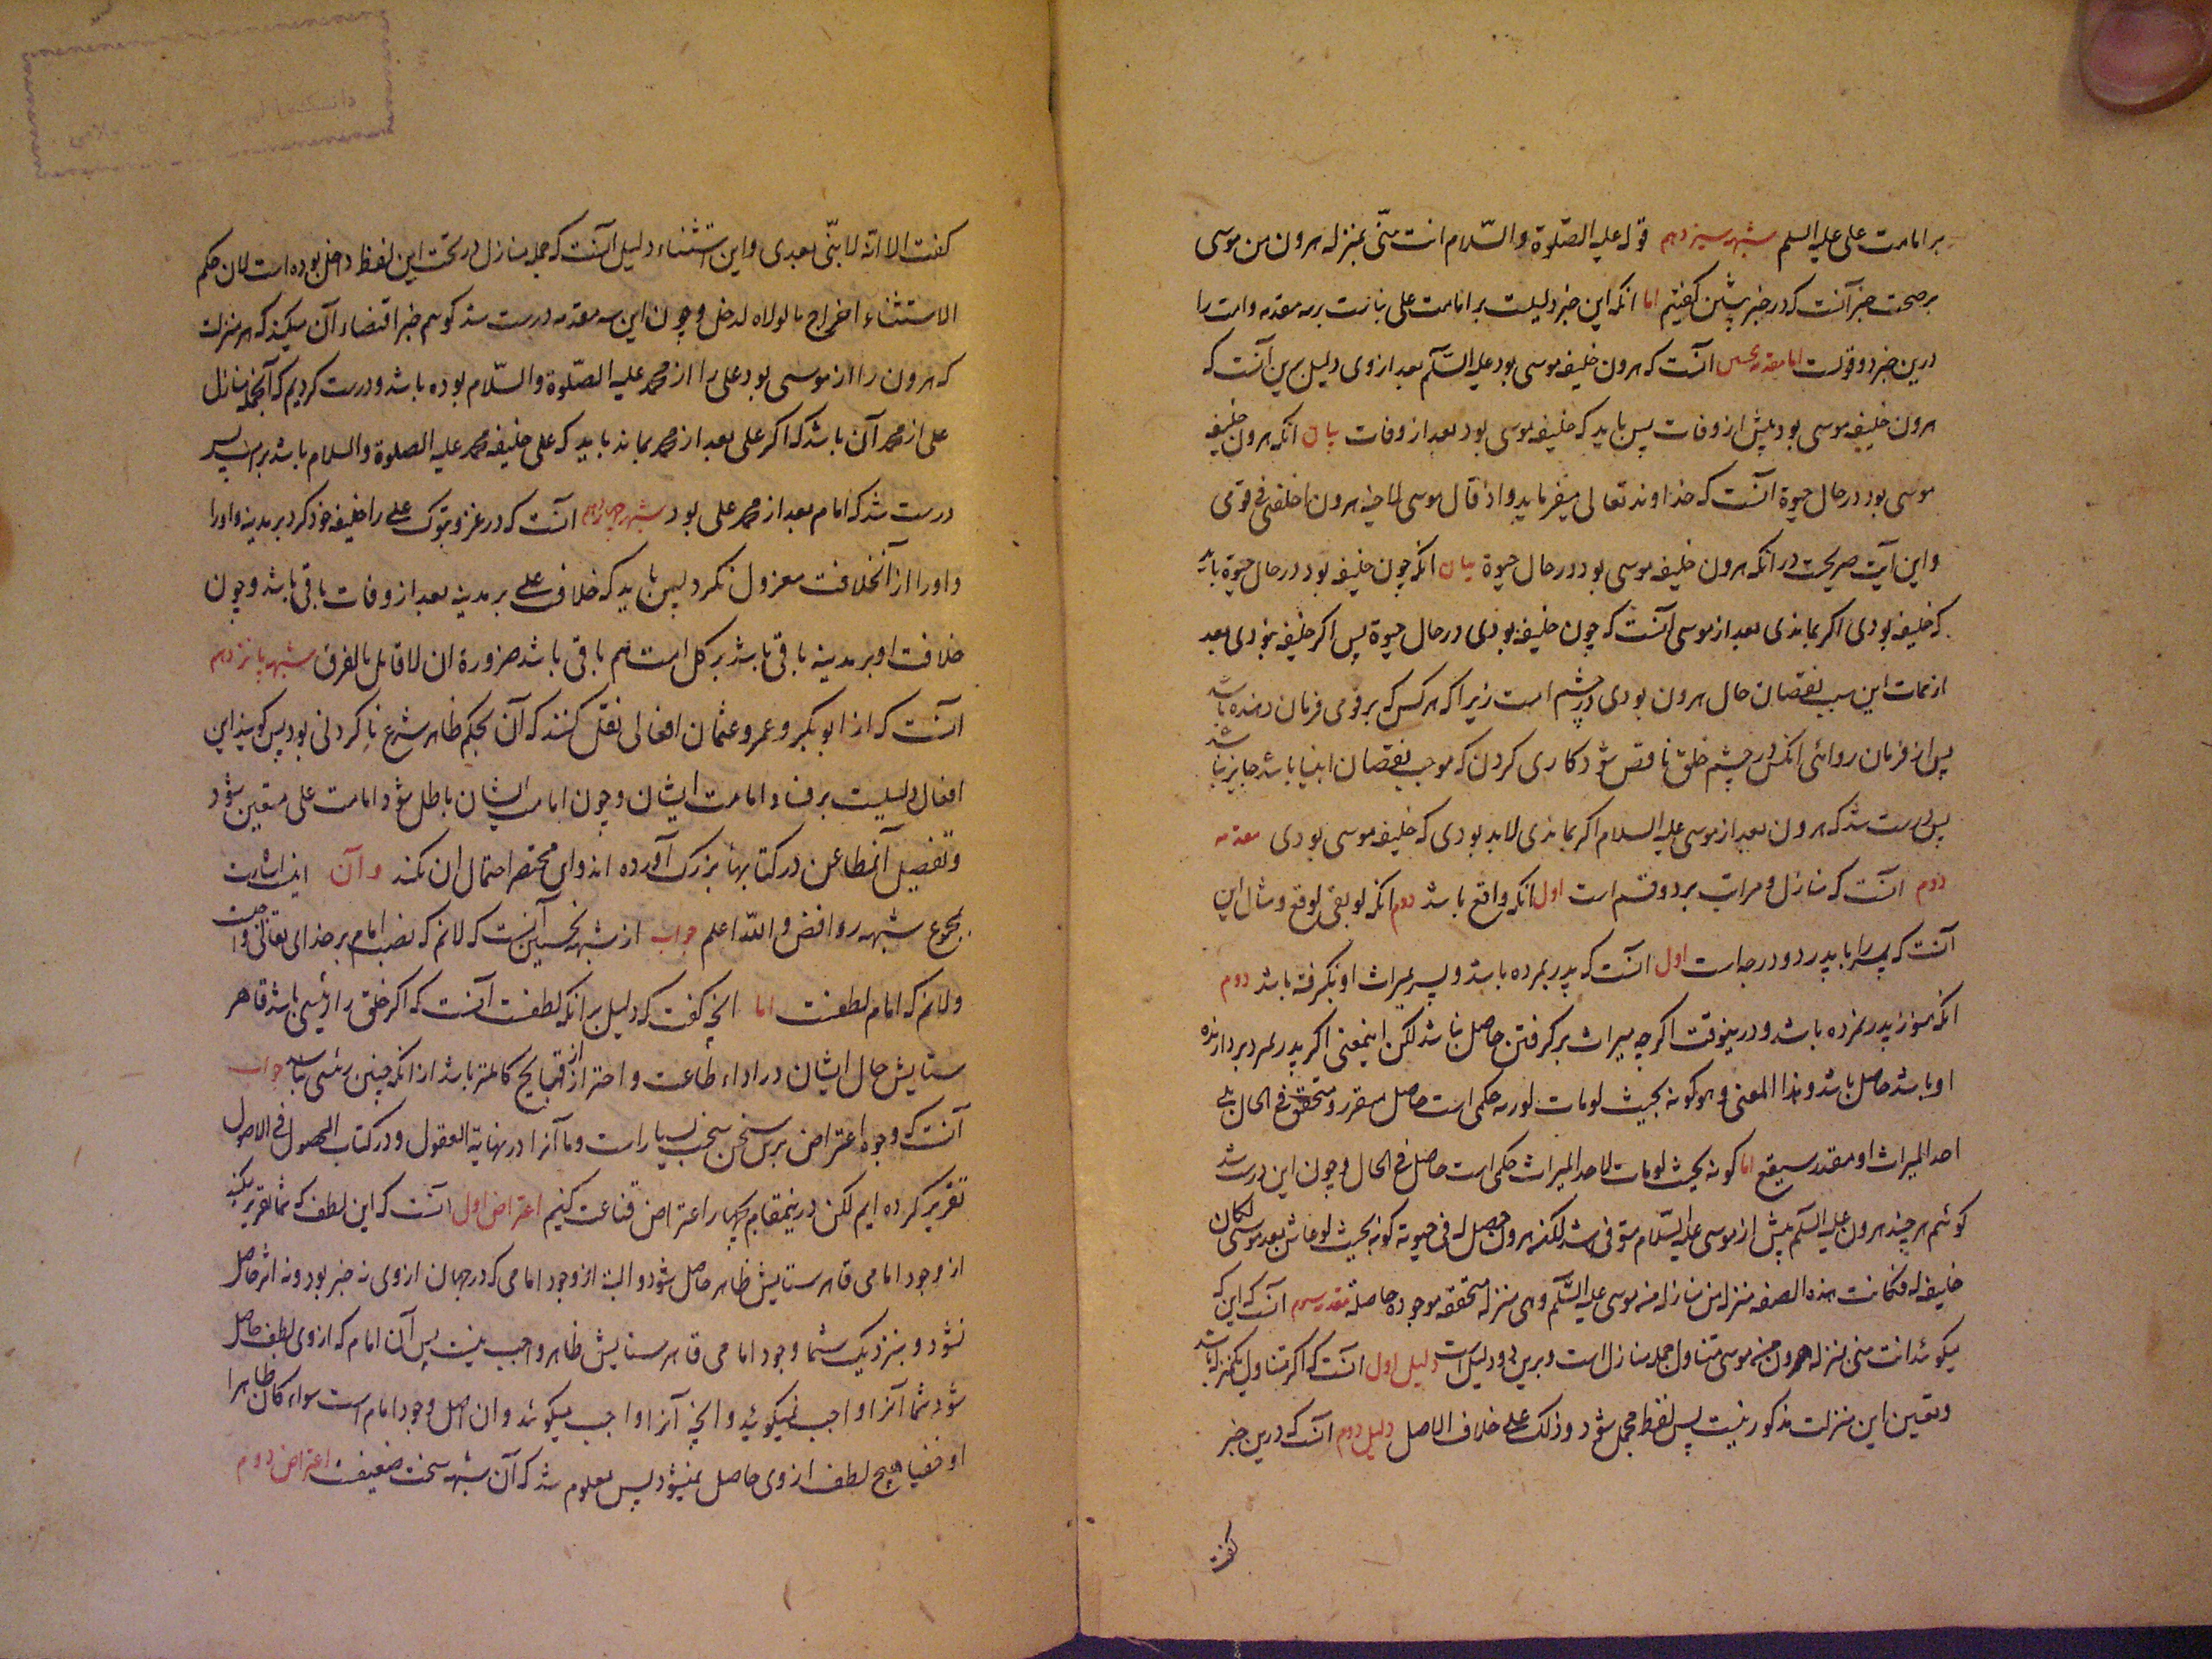 بر امامت علی علیه السلم شبهه سیزدهم قوله علیه الصّلوة والسّلام انت منّی بمنزله هرون من موسی
بر صحت خبر آنست که در خبر پیشین کفتیم اما انکه این خبر دلیلست بر امامت علی بناست بر سه مقدمه وامت را
درین خبر دو قولست اما مقدمه نخستین آنست که هرون خلیفه موسی بود علیه السّلم بعد از وی دلیل برین آنست که
هرون خلیفه موسی بود پیش از وفات پس باید که خلیفه موسی بود بعد از وفات بیان انکه هرون خلیفه
موسی بود در حال حیوة آنست که خداوند تعالی میفرماید واذ قال موسی لاخیه هرون اخلفنی فی قومی
واین آیت صریحست در انکه هرون خلیفه موسی بود در حال حیوة بیان انکه چون خلیفه بود در حال حیوة باید
که خلیفه بودی اکر بماندی بعد از موسی آنست که چون خلیفه بودی در حال حیوة پس اکر خلیفه نبودی بعد
از ممات این سبب نقصان حال هرون بودی در چشم امت زیرا که هر کس که بر قومی فرمان دهنده باشد
پس از فرمان روائی انکس در چشم خلق ناقص شود کاری کردن که موجب نقصان انبیا باشد جایز نباشد
پس درست شد که هرون بعد از موسی علیه السلام اکر بماندی لابد بودی که خلیفه موسی بودی مقدمه
دوم آنست که منازل و مراتب بر دو قسم است اول انکه واقع باشد دوم انکه لو بقی لوقع ومثال این
آنست که پسر را با پدر دو درجه است اول آنست که پدر بمرده باشد وپسر میراث او بکرفته باشد دوم
انکه هنوز پدر نمرده باشد ودرینوقت اکرچه میراث بر کرفتن حاصل نباشد لکن اینمعنی اکر پدر بمرد بردارنده
او باشد حاصل باشد وهذا المعنی وهو کونه بحیث لو مات لورثه حکمی است حاصل مقرر ومتحقق فی الحال بلی
اخذ المیراث او مقدر سیقع اما کونه بحیث لو مات لاخذ المیراث حکمی است حاصل فی الحال وچون این درست شد
کوئیم هر چند هرون علیه السّلم پیش از موسی علیه السّلام متوفی شد لکنه هرون حصل له فی حیوته کونه بحیث لو عاش بعد موسی لکان
خلیفه له فکانت هذه الصفه منزله من منازله منه موسی علیه السّلم وهی منزله متحققه موجودة حاصلة مقدمه سوم آنست که این که
میکوئد انت منی بمنزله هرون من موسی متناول جمله منازل است وبرین دو دلیل است دلیل اول آنست که اکر متناول یکمنزله باشد
وتعیین این منزلت مذکور نیست پس لفظ مجمل شود وذلک علی خلاف الاصل دلیل دوم آنست که درین خبر
کفت
کفت الا انّه لا نبیّ بعدی واین استثناء دلیل آنست که جمله منازل در تحت این لفظ داخل بوده است لان حکم
الاستثناء اخراج ما لولاه لدخل وچون این سه مقدمه درست شد کوئیم خبر اقتضاء آن میکند که هر منزلت
که هرون را از موسی بود علی را از محمد علیه الصّلوة والسّلام بوده باشد ودرست کردیم که آنجمله منازل
علی از محمد آن باشد که اکر علی بعد از محمد بماند باید که علی خلیفه محمد علیه الصلوة والسلام باشد برین
درست شد که امام بعد از محمد علی بود شبهه چهاردهم آنست که در غزو تبوک علی را خلیفه خود کرد بر مدینه واورا
واورا از آنخلافت معزول نکرد پس باید که خلافت علی بر مدینه بعد از وفات باقی باشد وچون
خلافت او بر مدینه باقی باشد بر کل امت هم باقی باشد ضرورة ان لا قایل بالفرق شبهه پانزدهم
آنست که از ابوبکر وعمر وعثمان افعالی نقل کنند که آن بحکم ظاهر شرع ناکردنی بود پس کویند این
افعال دلیلیست بر فساد امامت ایشان وچون امامت ایشان باطل شود امامت علی متعین شود
وتفصیل آنمطاعن در کتابهاء بزرک آورده اند واین مختصر احتمال ان نکند وآن اینست
مجموع شبهه روافض والله اعلم جواب از شبهه نخستین آنست که لانم که نصب امام بر خدای تعالی واجبست
ولانم که امام لطفست اما آنچه کفت که دلیل بر انکه لطفست آنست که اکر خلق را رئیسی باشد قاهر
ستایش حال ایشان در اداء طاعت واحتراز از قبایح کاملتر باشد از انکه چنین رئیسی نباشد جواب
آنست که وجوه اعتراض برین سخن سخت بسیار است وما آنرا در نهایة العقول ودر کتاب المحصول فی الاصول
تقریر کرده ایم لکن درینمقام بچهار اعتراض قناعت کنیم اعتراض اول آنست که این لطف که شما تقریر میکنید
از وجود امامی قاهر ستایش ظاهر حاصل شود والبته از وجود امامی که در جهان از وی نه خبر بود ونه اثر حاصل
نشود وبنزدیک شما وجود امامی قاهر ستایش ظاهر واجب نیست پس آن امام که از وی لطف حاصل
شود شما آنرا واجب نمیکوئید وآنچه آنرا واجب میکوئد وان اصل وجود امام است سواء کان ظاهرا
او خفیا هیچ لطف از وی حاصل نمیشود پس معلوم شد که آن شبهه سخت ضعیفست اعتراض دوم